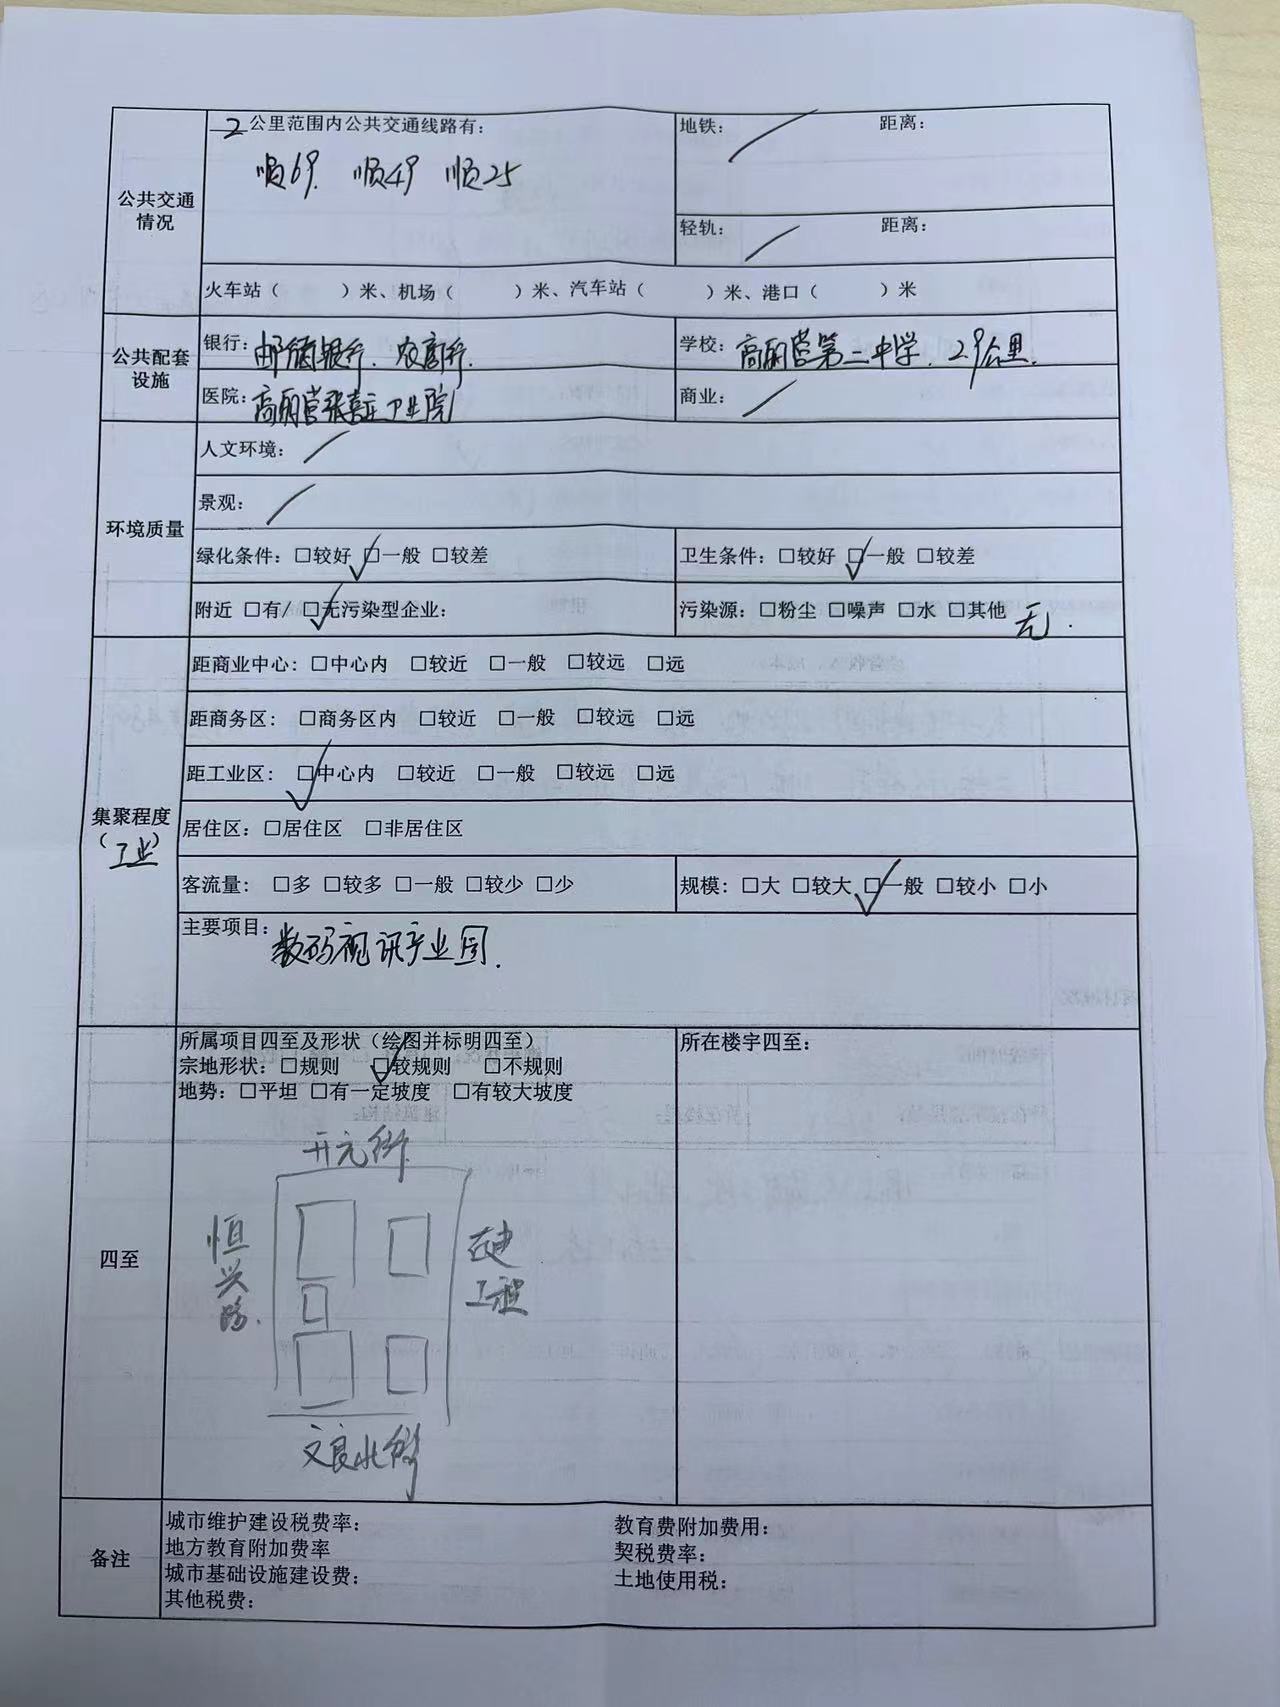 2公里范围内公共交通线路有：
地铁：/ 距离：
顺69. 顺49 顺25
公共交通
情况
轻轨：/ 距离：
火车站（ ）米、机场（ ）米、汽车站（ ）米、港口（ ）米
公共配套
设施
银行：邮储银行、农商行.
学校：高丽营第二中学. 2.9公里.
医院：高丽营张喜庄卫生院
商业：/
环境质量
人文环境：/
景观：/
绿化条件：□较好 ☑一般 □较差
卫生条件：□较好 ☑一般 □较差
附近 □有/ ☑无污染型企业：
污染源：□粉尘 □噪声 □水 □其他 无.
集聚程度
（工业）
距商业中心：□中心内 □较近 □一般 □较远 □远
距商务区：□商务区内 □较近 □一般 □较远 □远
距工业区：☑中心内 □较近 □一般 □较远 □远
居住区：□居住区 □非居住区
客流量：□多 □较多 □一般 □较少 □少
规模：□大 □较大 ☑一般 □较小 □小
主要项目：数码视讯产业园.
四至
所属项目四至及形状（绘图并标明四至）
宗地形状：□规则 ☑较规则 □不规则
地势：□平坦 □有一定坡度 □有较大坡度
所在楼宇四至：
开元街
恒兴路.
在建
工程
文良北街
备注
城市维护建设税费率：
教育费附加费用：
地方教育附加费率
契税费率：
城市基础设施建设费：
土地使用税：
其他税费：